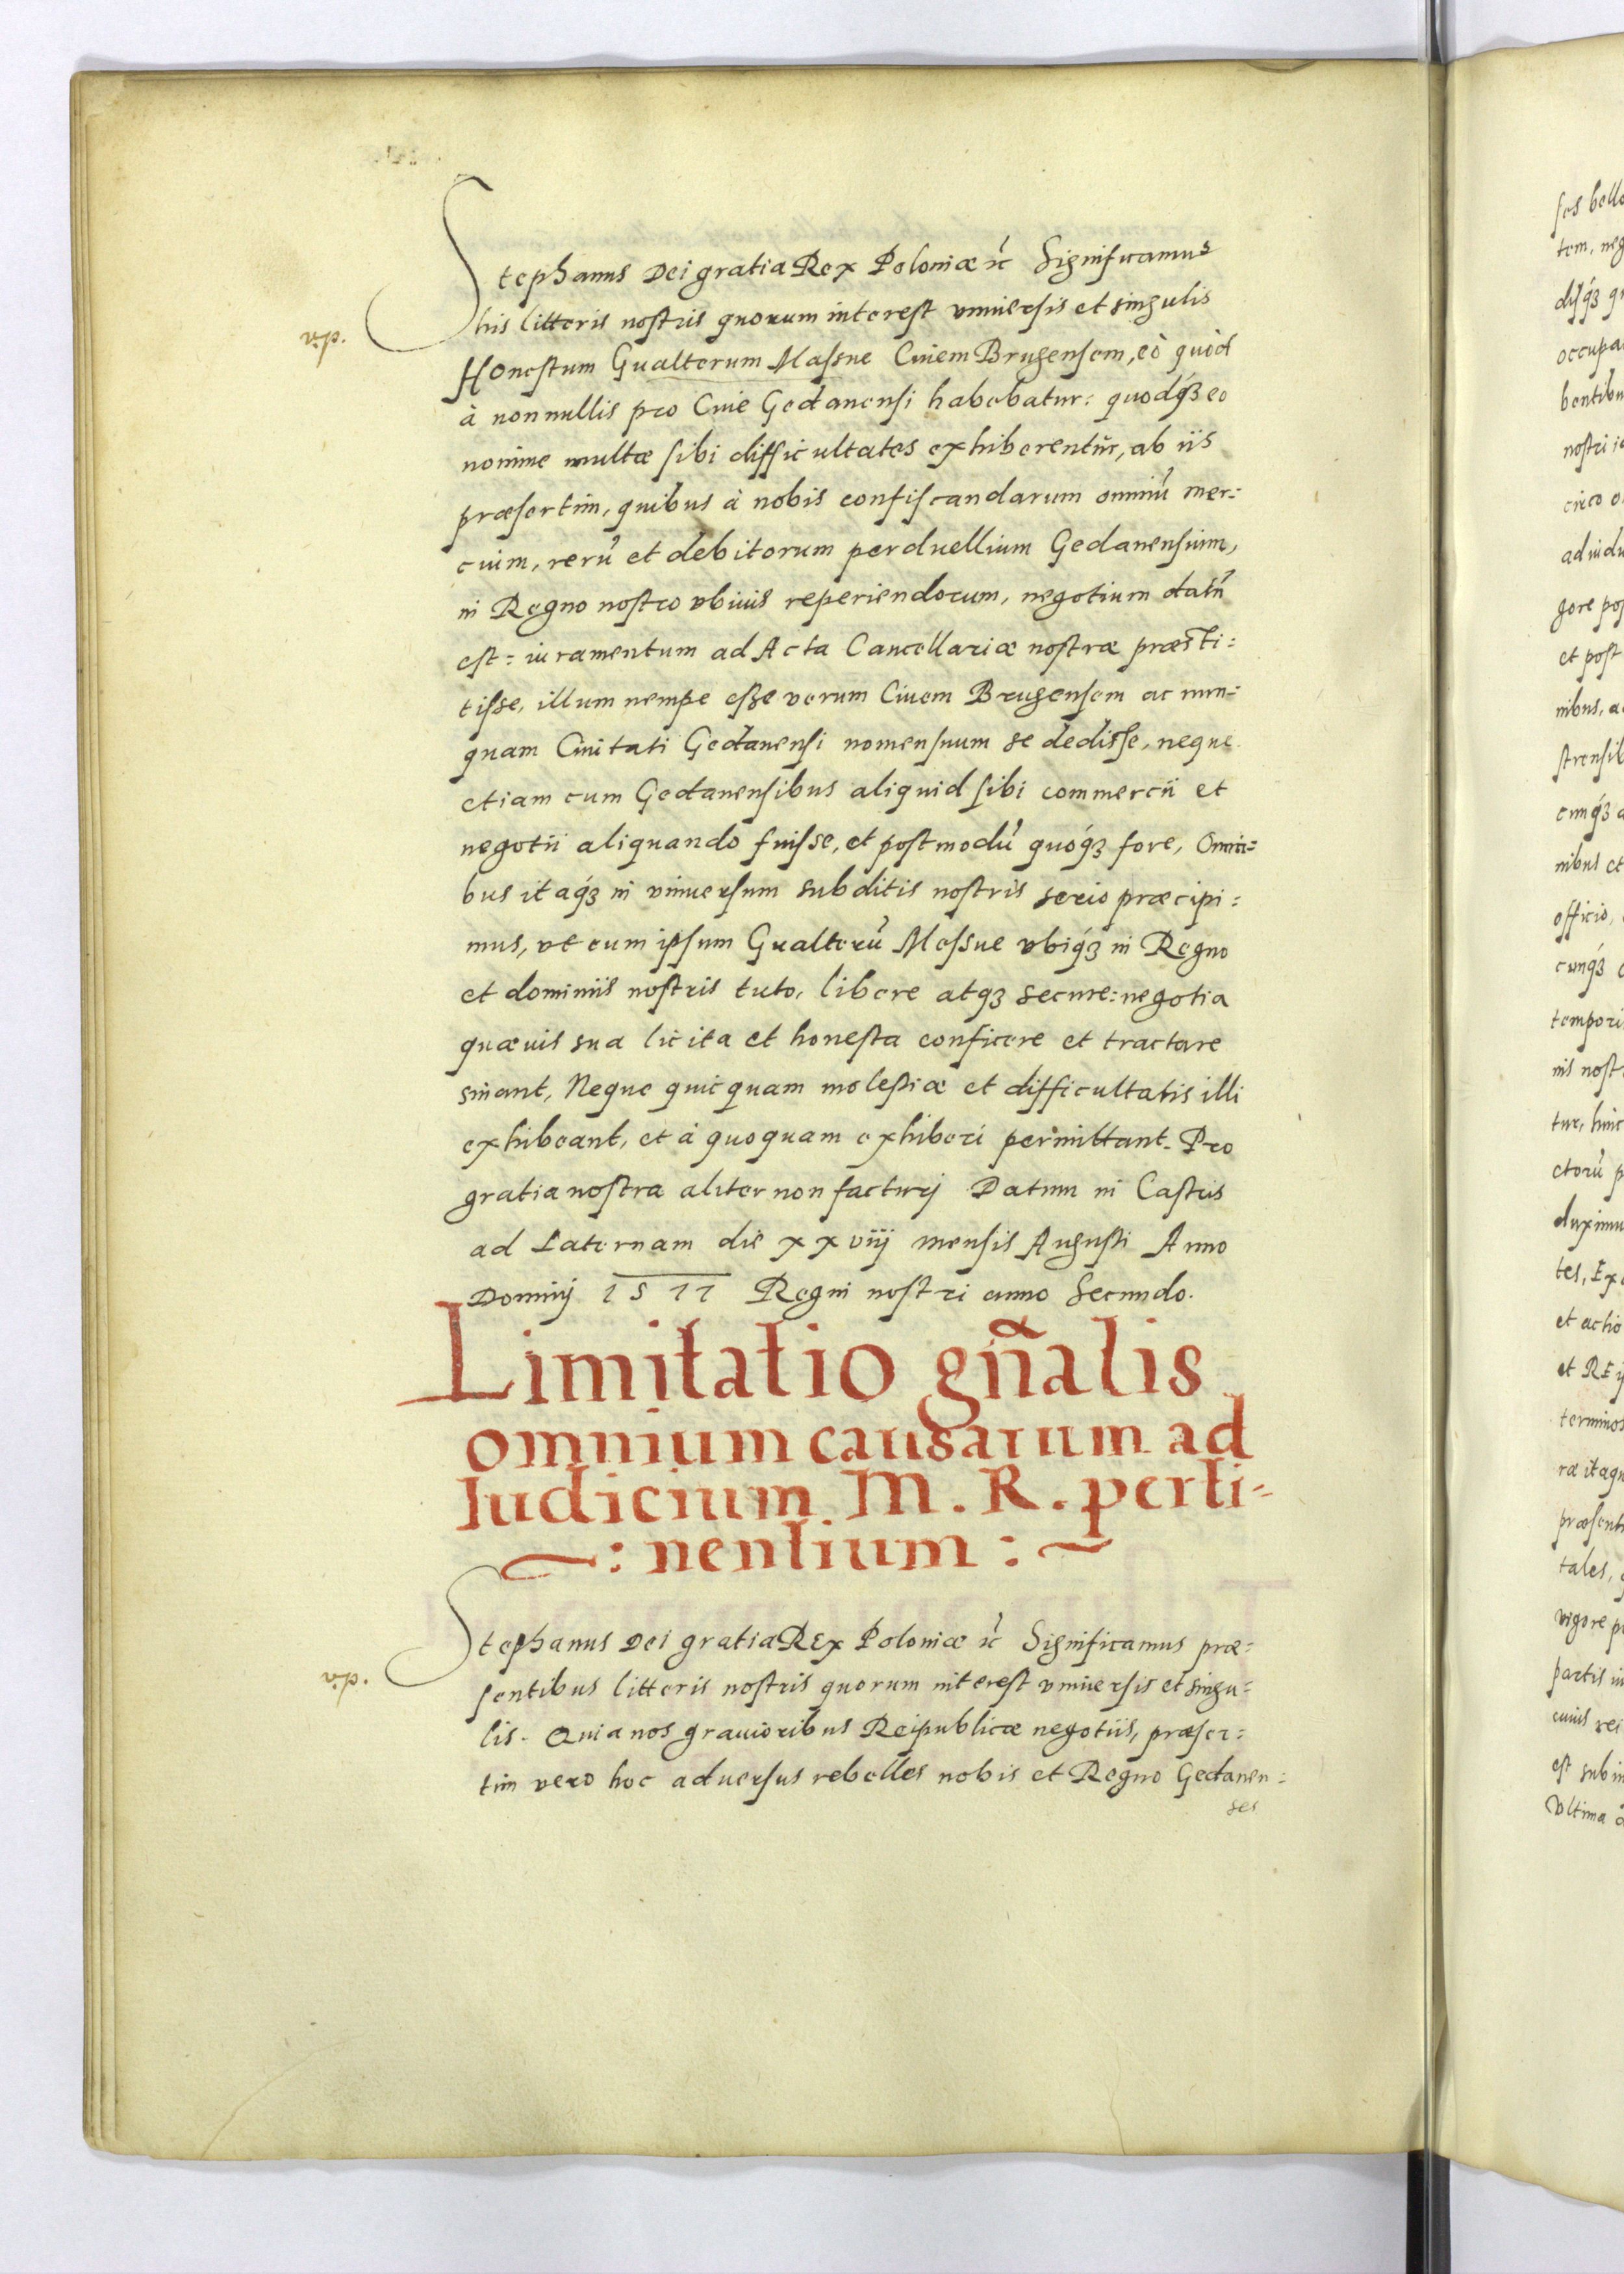 Stephanus Dei gratia Rex Poloniæ ꝛc̃ Significamus
his litteris nostris quorum interest vniuersis et singulis
Honestum Gualterum Massue Ciuem Brugensem, eò quòd
à nonnullis pro Ciue Gedanensi habebatur: quodq́ꝫ eo
nomine multæ sibi difficultates exhiberentur, ab iis
præsertim, quibus à nobis confiscandarum omniũ mer:
cium, rerũ et debitorum perduellium Gedanensium,
in Regno nostro vbiuis reperiendorum, negotium datũ
est: iuramentum ad Acta Cancellariæ nostræ præsti:
tisse, illum nempe esse verum Ciuem Brugensem ac nun:
quam Ciuitati Gedanensi nomen suum se dedisse, neque
etiam cum Gedanensibus aliquid sibi commercii et
negotii aliquando fuisse, et postmodũ quoq́ꝫ fore, Omni:
bus itaq́ꝫ in vniuersum subditis nostris serio præcipi:
mus, vt eum ipsum Gualterũ Messue vbiq́ꝫ in Regno
et dominiis nostris tuto, libere atqꝫ secure: negotia
quæuis sua licita et honesta conficere et tractare
sinant, Neque quicquam molestiæ et difficultatis illi
exhibeant, et à quoquam exhiberi permittant. Pro
gratia nostra aliter non facturj Datum in Castris
ad Laternam die xxviij mensis Augusti Anno
Dominj 1577 Regni nostri anno Secundo.
Limitatio gñalis
omnium causarum ad
Iudicium M. R. perti-
: nentium :
Stephanus Dei gratia REx Poloniæ ꝛc̃ Significamus præ:
sentibus litteris nostris quorum interest vniuersis et singu:
lis. Quia nos grauioribus Reipublicæ negotiis, præser:
tim vero hoc aduersus rebelles nobis et Regno Gedanen:
ses
ses bello
tem, neg
disq́ꝫ
occupa
bentibu
nostri
gore pos
et post
nibus, a
strensib
cunq́ꝫ
nibus et
officio,
cunqꝫ
tempori
nis nost
tur, hinc
ctorũ p
duximu
tes, Ex
et actio
et REi
terminos
ræ itaqu
præsent
tales,
vigore p
partis in
cuius rei
est sub
Vltima